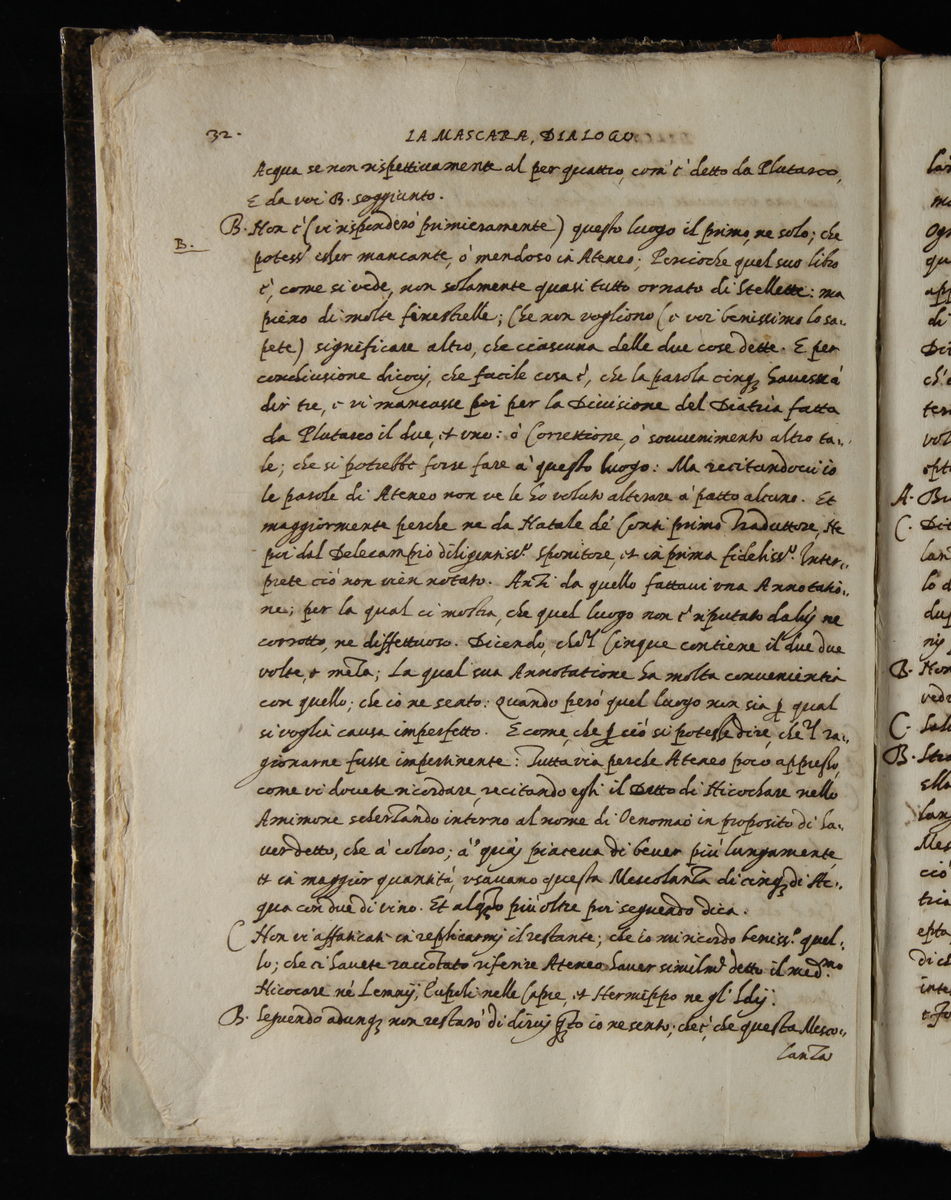 32.
LA MASCARA, DIALOGO
Acqua se non rispettivamente al per quattro, com' è detto da Plutarco,
E da voi B. soggiunto.
B. Non è (vi risponderò primieramente) questo luogo il primo, ne solo; che
B.
potess' esser mancante, ò mendoso in Ateneo; Percioche quel suo libro
è, come si vede, non solamente quasi tutto ornato di Stellette: ma
pieno di molte finestrelle; Che non vogliono (e voi benissimo lo sa-
pete) significare altro, che ciascuna delle due cose dette. E per
conclusione dicovi, che facile cosa è, che la parola cinq₃ havesse à
dir tre, e vi mancasse poi per la Divisione del Diatria fatta
da Plutarco il due, et uno: ò Correttione, ò souvenimento altro ta-
le; che si potrebbe forse fare à questo luogo: Ma recitandovi io
le parole di Ateneo non ve le hò voluto alterare à patto alcuno. Et
maggiormente perche ne da Natale de' Conti primo Traduttore, Ne
poi dal Delecampio diligentiss.º Spositore, et in prima fideliss.º Inter-
prete ciò non vien notato. Anzi da quello fattavi una Annotatio-
ne; per la qual ci mostra, che quel luogo non è riputato da lui ne
corrotto, ne diffettuoso. Dicendo, che 'l Cinque contiene il due due
volte, e meza; La qual sua Annotatione hà molta convenientia
con quello; che io ne sento: Quando però quel luogo non sia p qual
si voglia causa imperfetto. E come, che p ciò si potesse dire, che 'l ra-
gionarne fusse impertinente: Tuttavia perche Ateneo poco appresso,
come vi dovete ricordare, recitando egli il Detto di Nicochare nello
Amimone scherzando intorno al nome di Oenomao in proposito di ha-
ver detto, che à coloro; à quali piaceva di bever più lungamente,
et in maggior quantità, usavano questa Mescolanza di cinq₃ di Ac-
qua con due di vino. Et alq̃to più oltre poi seguendo dica.
C Non vi affaticate in replicarmi il restante; che io mi ricordo beniss.º quel-
lo; che ci havete raccontato riferire Ateneo haver similmᵗᵉ detto il med.ᵐᵒ
Nicocare nè Lemnij, Eupoli nelle Capre, et Hermippo ne gl' Idij.
B. Seguendo adunq₃ non restarò di dirvi q̃to io ne sento; che è, che questa Mesco-
lanza